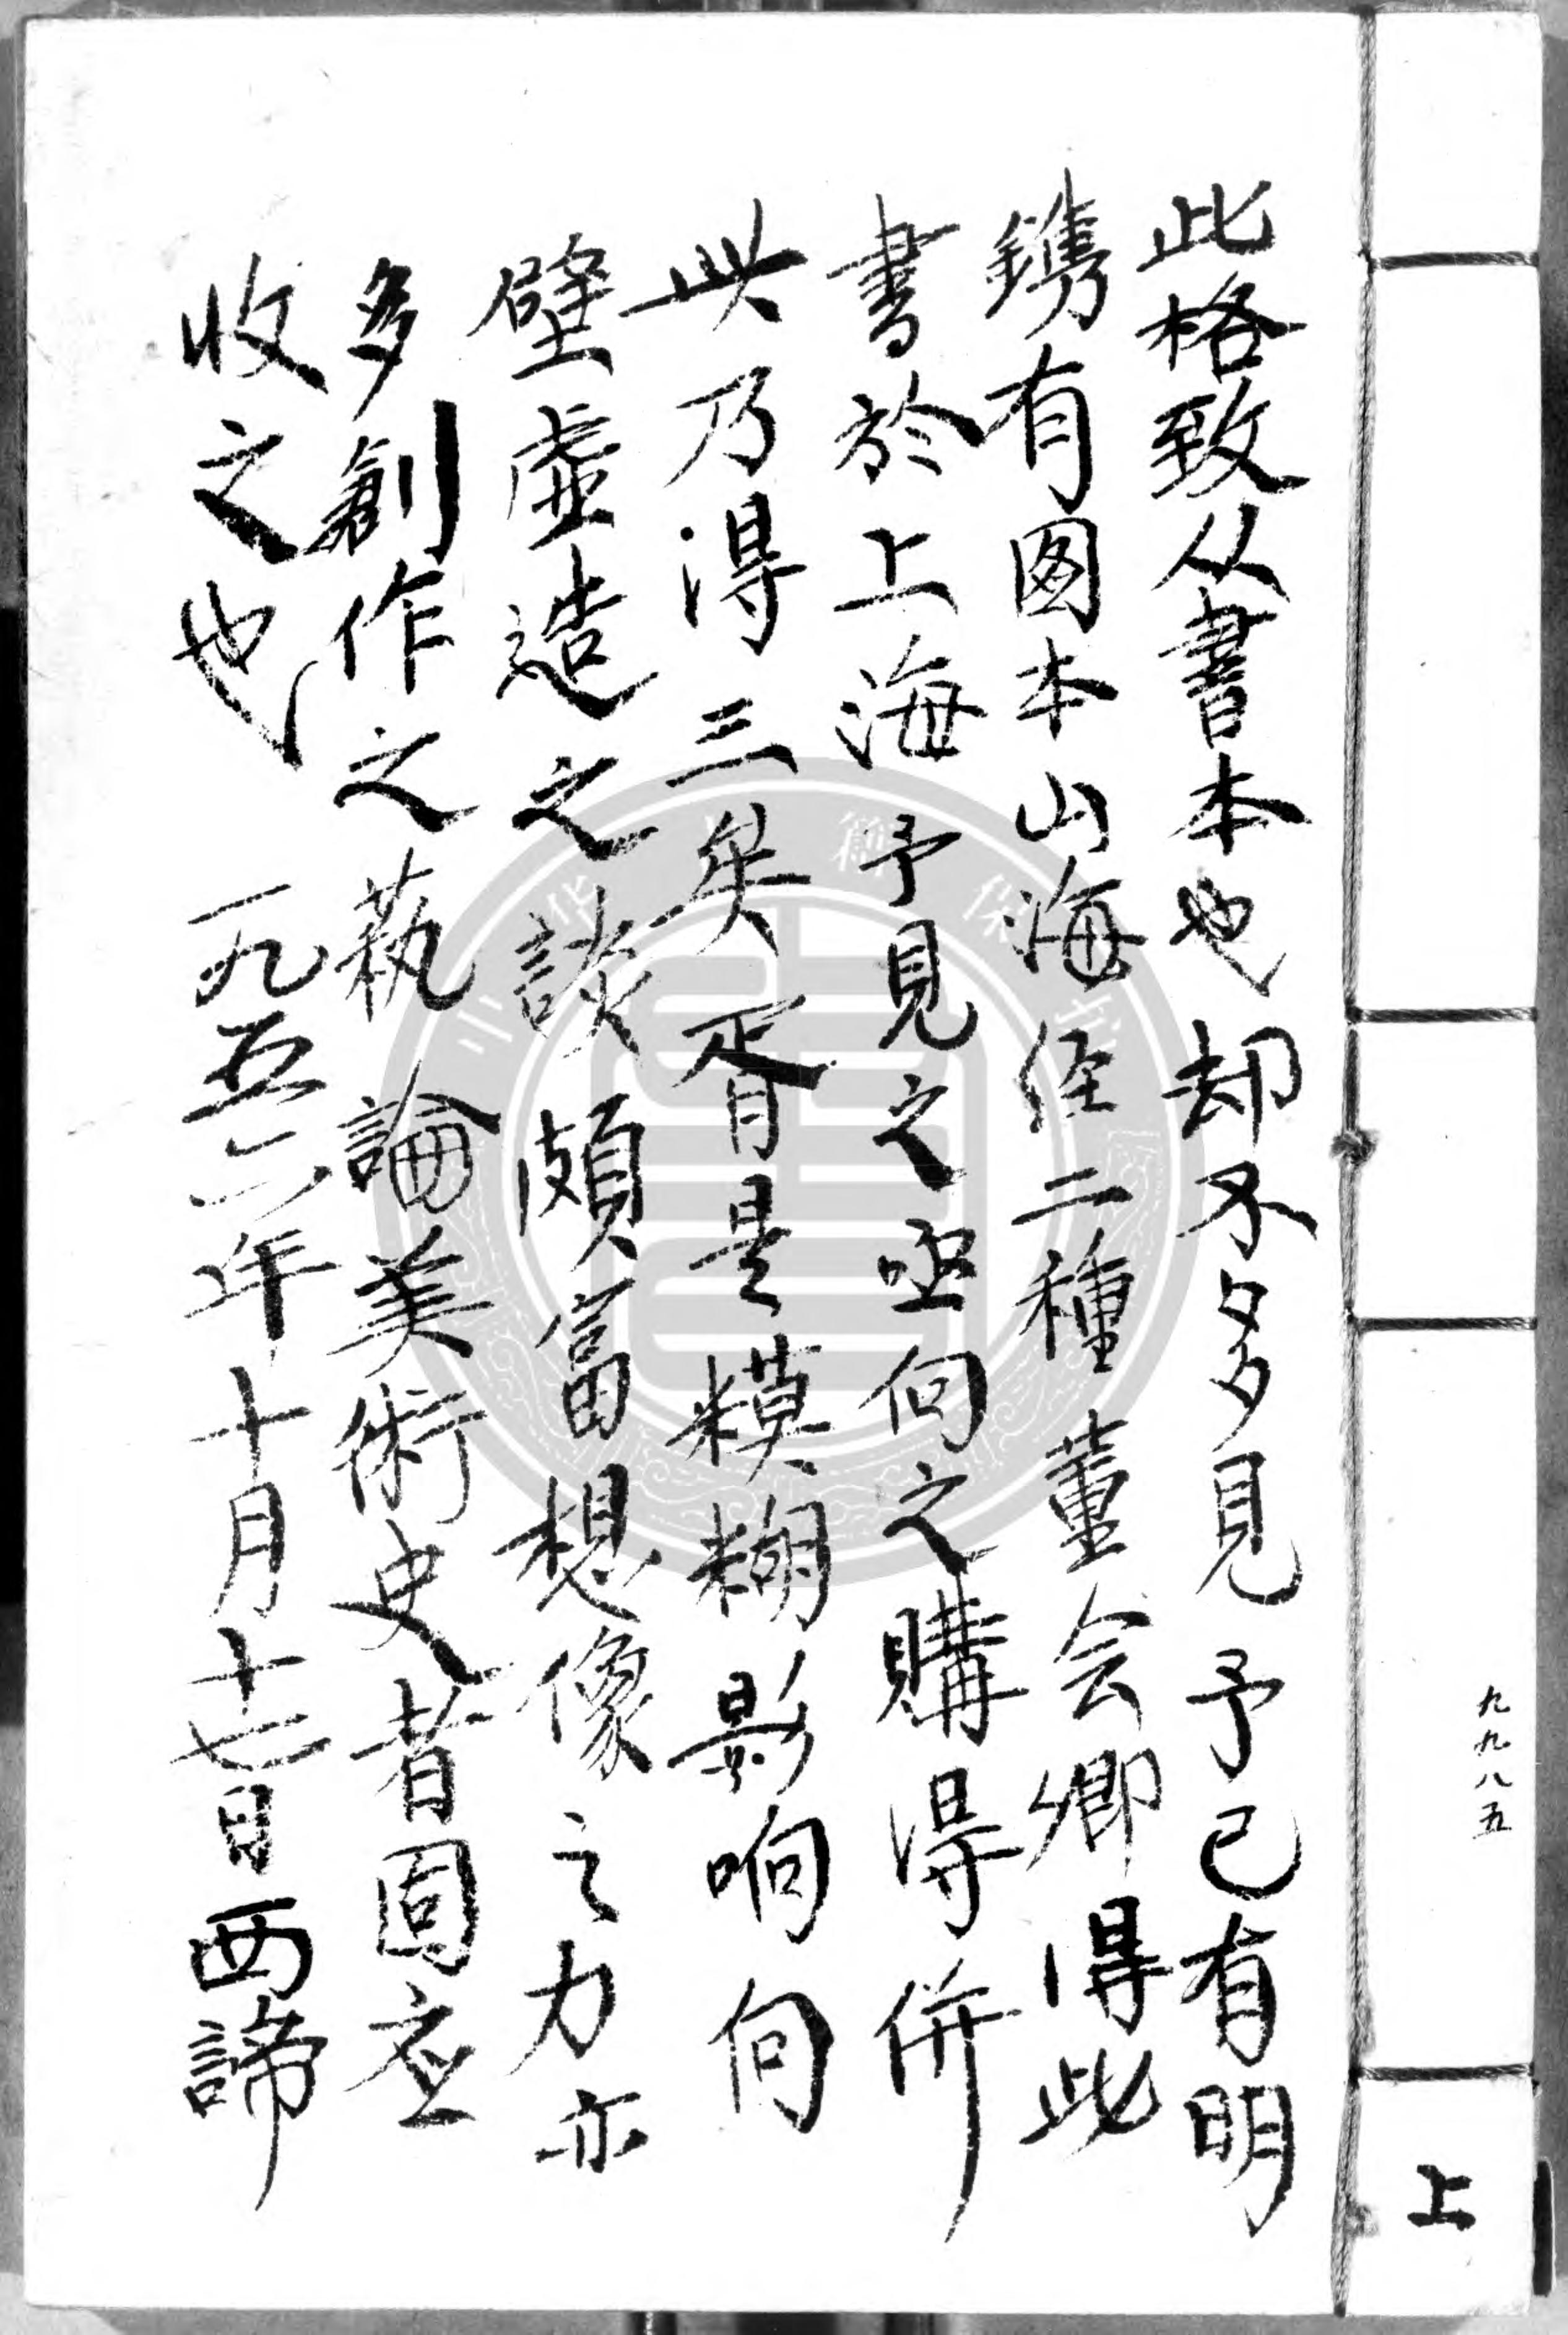 此格致从書本也却不多見予已有明
鐫有图本山海经二種董会卿得此
書於上海予見之亟向之購得併
此乃得三矣胥是糢糊影响向
壁虛造之談頗富想像之力亦
多創作之藝論美術史者固应
收之也 一九五六年十月十七日西諦
九九八五
上